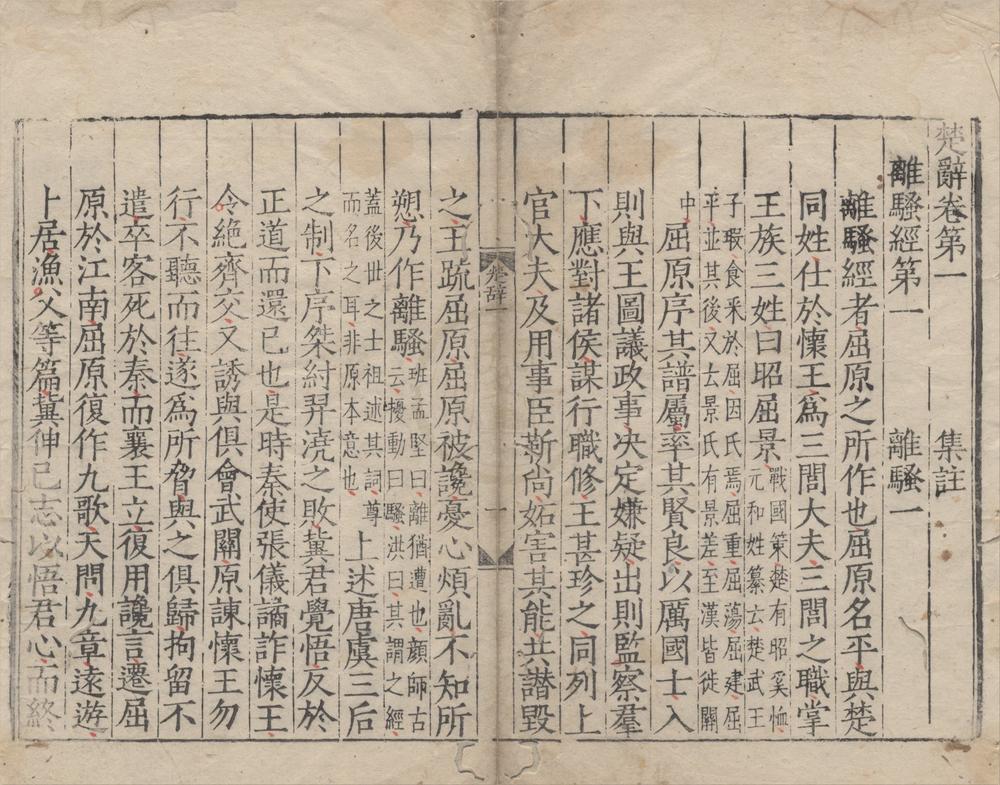 楚辭卷第一　集註
離騷經第一　離騷一
離騷經者屈原之所作也屈原名平與楚
同姓仕於懷王爲三閭大夫三閭之職掌
王族三姓曰昭屈景戰國策楚有昭奚恤元和姓纂云楚武王
子瑕食采於屈因氏焉屈重屈蕩屈建屈平並其後又云景氏有景差至漢皆徙關
中屈原序其譜屬率其賢良以厲國士入
則與王圖議政事决定嫌疑出則監察羣
下應對諸侯謀行職修王甚珍之同列上
官大夫及用事臣靳尚妬害其能共譖毀
楚辞一　一
之王疏屈原屈原被讒憂心煩亂不知所
愬乃作離騷班孟堅曰離猶遭也顔師古云擾動曰騷洪曰其謂之經
蓋後世之士祖述其詞尊而名之耳非原本意也上述唐虞三后
之制下序桀紂羿澆之敗冀君覺悟反於
正道而還已也是時秦使張儀譎詐懷王
令絶齊交又誘與俱會武關原諫懷王勿
行不聽而往遂爲所脅與之俱歸拘留不
遣卒客死於秦而襄王立復用讒言遷屈
原於江南屈原復作九歌天問九章遠遊
卜居漁父等篇冀伸已志以悟君心而終